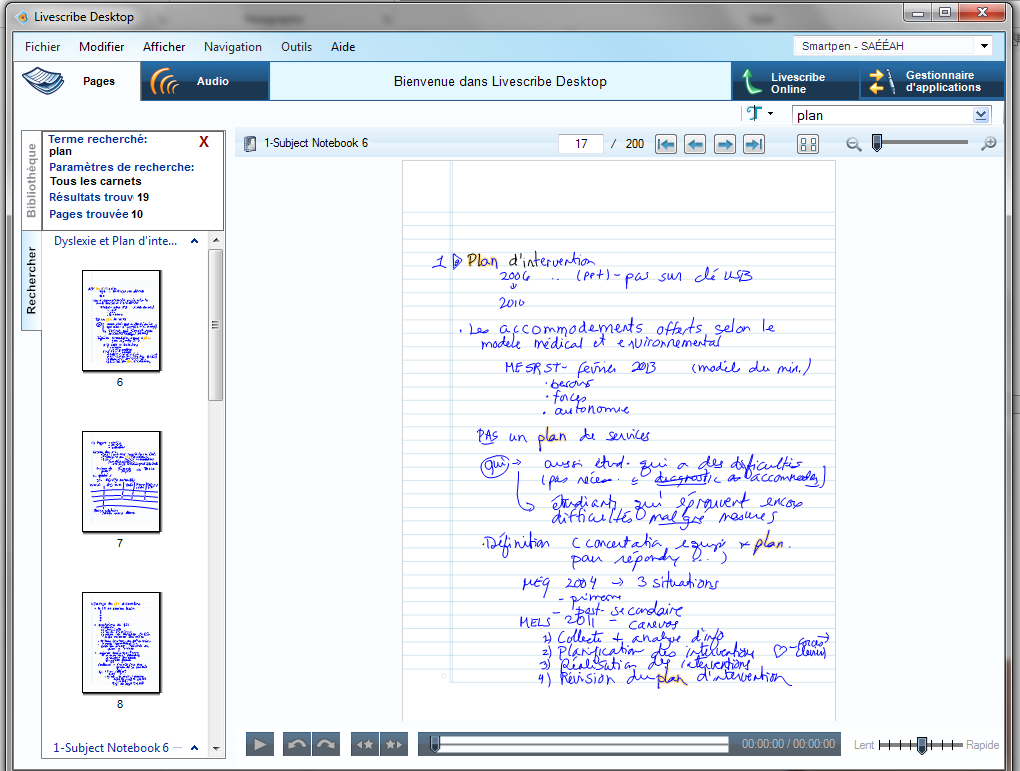 Livescribe Desktop
Fichier Modifier Afficher Navigation Outils Aide
Smartpen - SAÉÉAH
Pages
Audio
Bienvenue dans Livescribe Desktop
Livescribe Online
Gestionnaire d'applications
plan
Bibliothèque
Rechercher
Terme recherché: X
plan
Paramètres de recherche:
Tous les carnets
Résultats trouv 19
Pages trouvée 10
Dyslexie et Plan d'inte...
6
7
8
1-Subject Notebook 6
1-Subject Notebook 6
17 / 200
1 Plan d'intervention
2006 .. (ppt) - pas sur clé USB
2010
· Les accommodements offerts selon le
modèle médical et environnemental
MESRST - février 2013 (modèle du min.)
· besoins
· forces
· autonomie
PAS un plan de services
qui → aussi étud. qui a des difficultés
(pas néces. diagnostic accommodés)
étudiants qui éprouvent encore
difficultés malgré mesures
· Définition (concertation plan.
pour répondre ...)
MEQ 2004 → 3 situations
- primaire
- post-secondaire
MELS 2011 - canevas
1) Collecte + analyse d'info
2) Planification des interventions
3) Réalisation des interventions
4) Révision du plan d'intervention
00:00:00 / 00:00:00
Lent Rapide